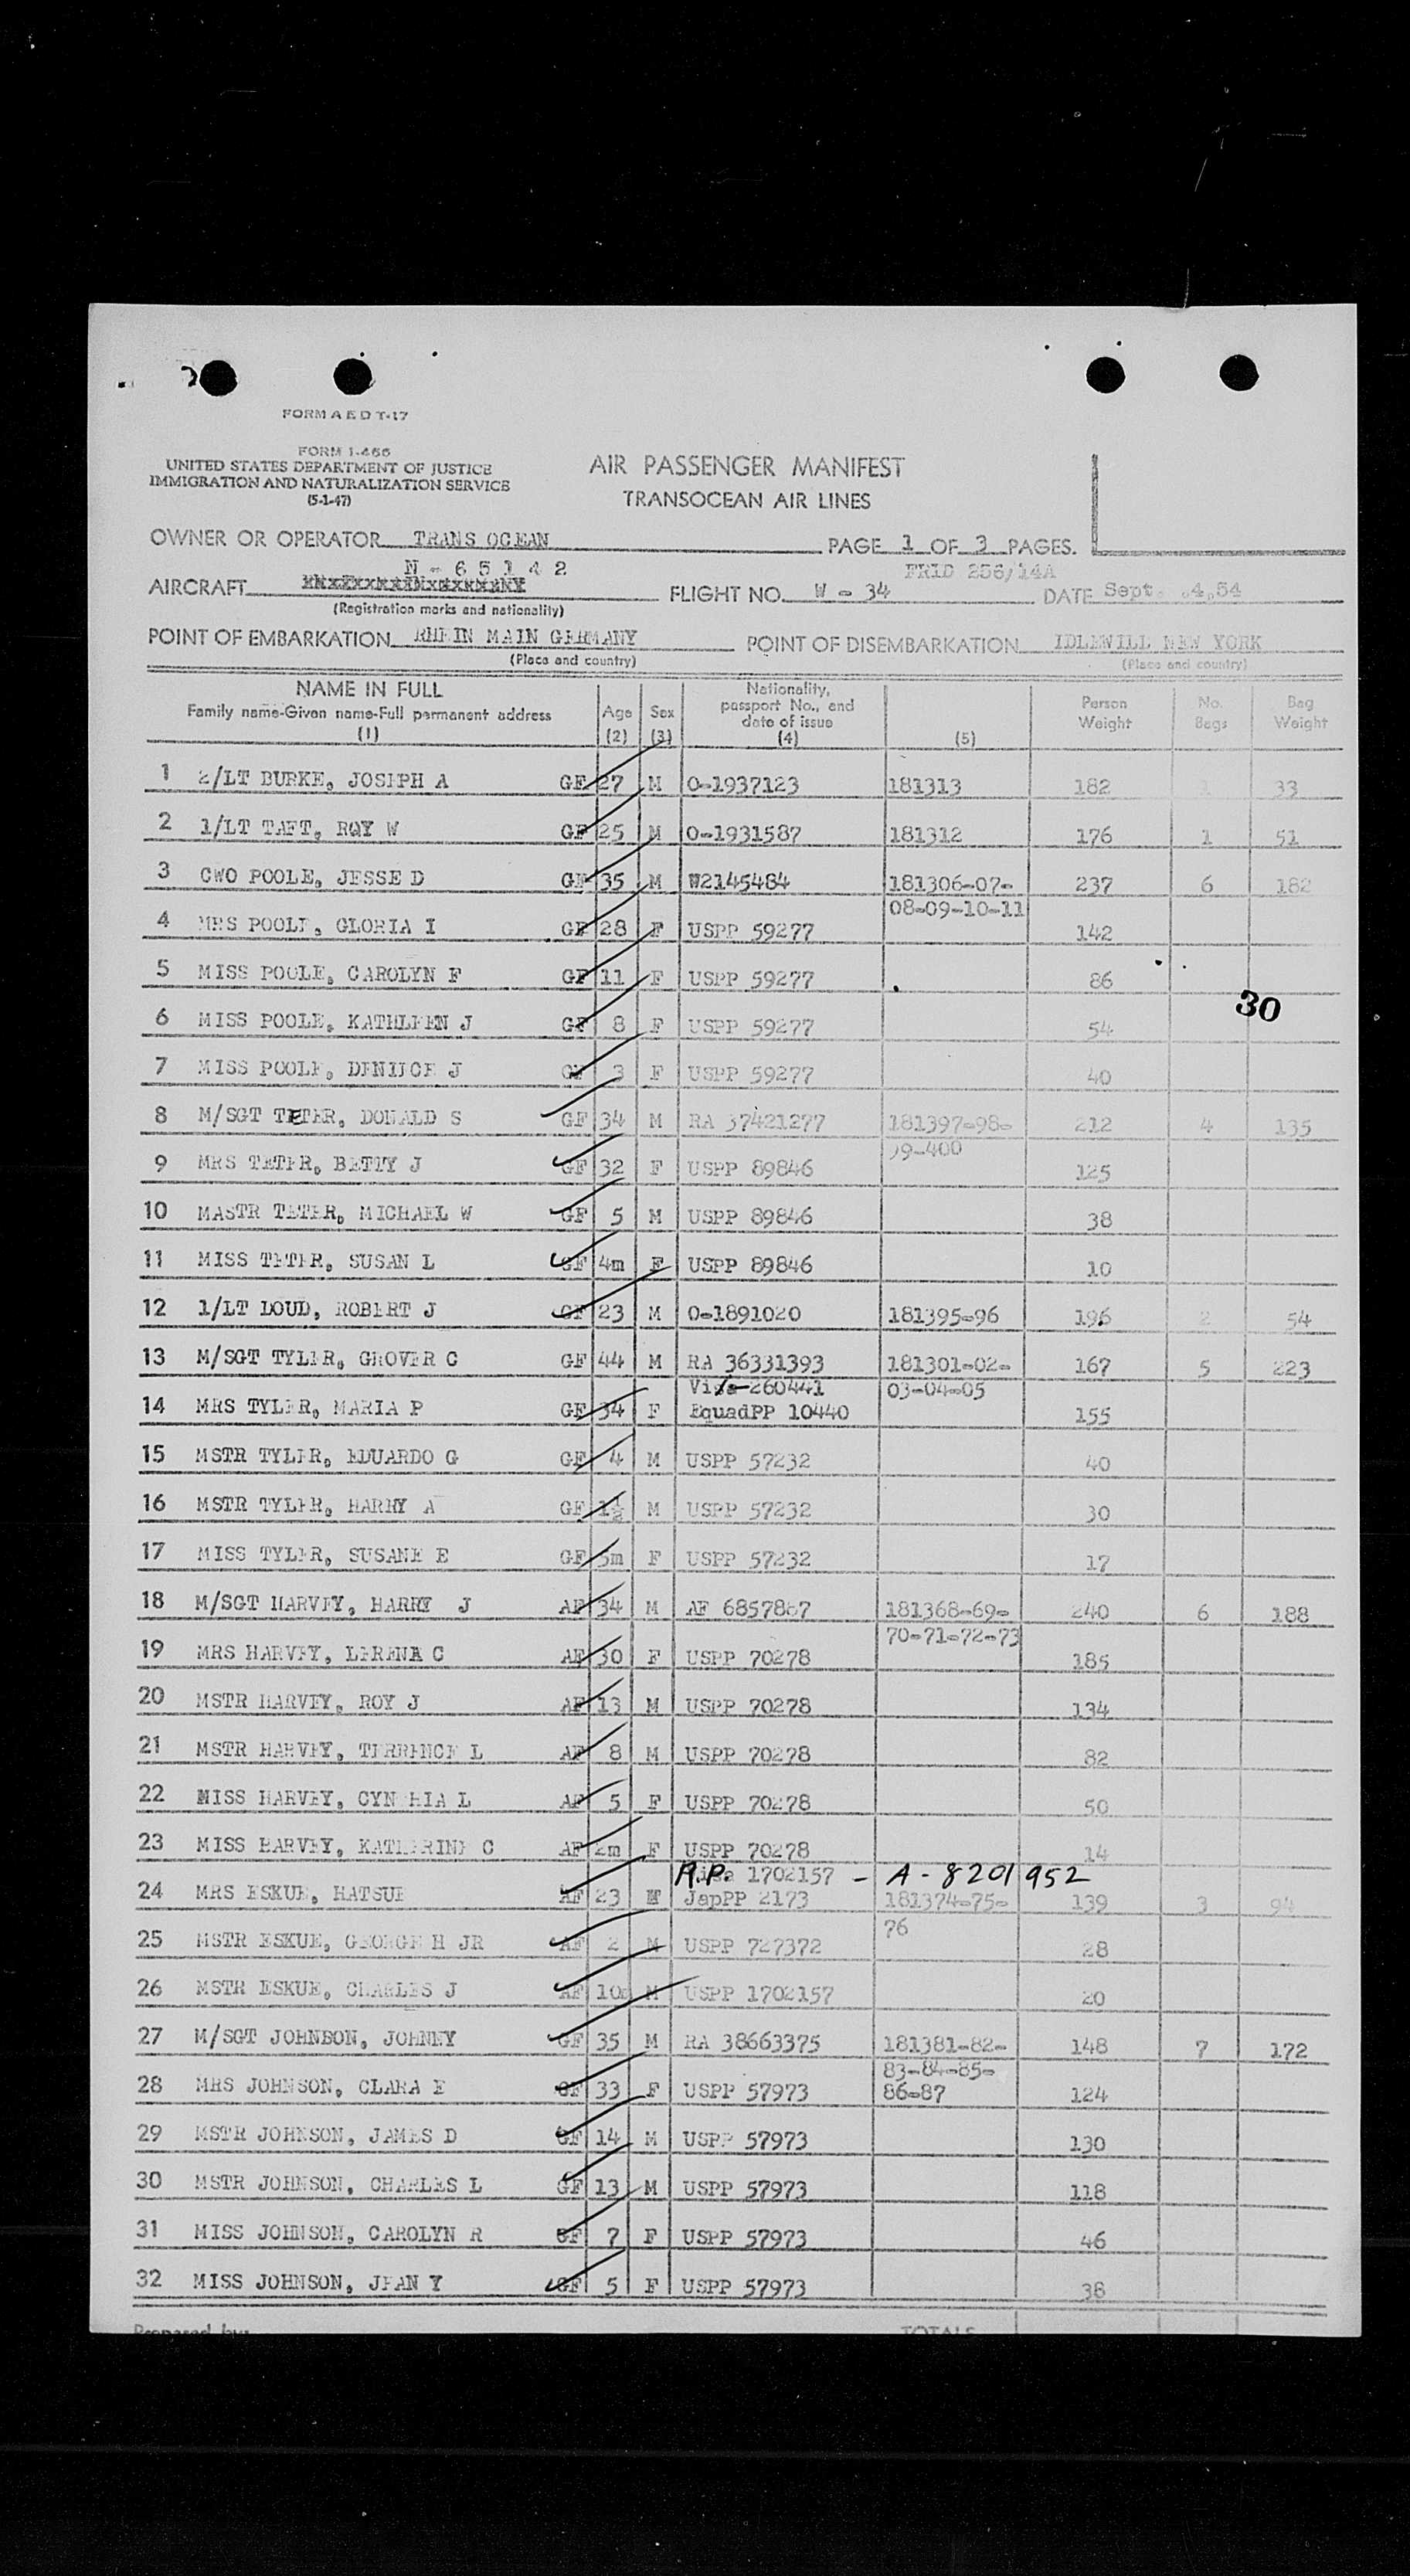 FORM A E D T-17
FORM 1-466
UNITED STATES DEPARTMENT OF JUSTICE
IMMIGRATION AND NATURALIZATION SERVICE
(5-1-47)
AIR PASSENGER MANIFEST
TRANSOCEAN AIR LINES
OWNER OR OPERATOR TRANS OCEAN PAGE 1 OF 3 PAGES.
N - 6 5 1 4 2 FRID 256/14A
AIRCRAFT FLIGHT NO. W - 34 DATE Sept. .4,54
(Registration marks and nationality)
POINT OF EMBARKATION RHEIN MAIN GERMANY POINT OF DISEMBARKATION IDLEWILL NEW YORK
(Place and country) (Place and country)
NAME IN FULL Family name-Given name-Full permanent address (1) Age (2) Sex (3) Nationality, passport No., and date of issue (4) (5) Person Weight No. Bags Bag Weight
1 2/LT BURKE, JOSEPH A GF 27 M O-1937123 181313 182 1 33
2 1/LT TAFT, ROY W GF 25 M O-1931587 181312 176 1 51
3 CWO POOLE, JESSE D GF 35 M W2145484 181306-07- 237 6 182
08-09-10-11
4 MRS POOLE, GLORIA I GF 28 F USPP 59277 142
5 MISS POOLE, CAROLYN F GF 11 F USPP 59277 86
30
6 MISS POOLE, KATHLEEN J GF 8 F USPP 59277 54
7 MISS POOLE, DENIICE J GF 3 F USPP 59277 40
8 M/SGT TETER, DONALD S GF 34 M RA 37421277 181397-98- 212 4 135
99-400
9 MRS TETER, BETTY J GF 32 F USPP 89846 125
10 MASTR TETER, MICHAEL W GF 5 M USPP 89846 38
11 MISS TETER, SUSAN L GF 4m F USPP 89846 10
12 1/LT LOUD, ROBERT J GF 23 M O-1891020 181395-96 196 2 54
13 M/SGT TYLER, GROVER C GF 44 M RA 36331393 181301-02- 167 5 223
Visa-260441 03-04-05
14 MRS TYLER, MARIA P GF 34 F EquadPP 10440 155
15 MSTR TYLER, EDUARDO G GF 4 M USPP 57232 40
16 MSTR TYLER, HARRY A GF 1½ M USPP 57232 30
17 MISS TYLER, SUSANE E GF 5m F USPP 57232 17
18 M/SGT HARVEY, HARRY J AF 34 M AF 6857867 181368-69- 240 6 188
70-71-72-73
19 MRS HARVEY, LERENA C AF 30 F USPP 70278 185
20 MSTR HARVEY, ROY J AF 13 M USPP 70278 134
21 MSTR HARVEY, TERRENCE L AF 8 M USPP 70278 82
22 MISS HARVEY, CYNTHIA L AF 5 F USPP 70278 50
23 MISS HARVEY, KATHERINE C AF 2m F USPP 70278 14
R.P. Visa 1702157 - A-8201952
24 MRS ESKUE, HATSUE AF 23 JapPP 2173 181374-75- 139 3 94
76
25 MSTR ESKUE, GEORGE H JR AF 2 M USPP 727372 28
26 MSTR ESKUE, CHARLES J AF 10m M USPP 1702157 20
27 M/SGT JOHNSON, JOHNEY GF 35 M RA 38663375 181381-82- 148 7 172
83-84-85-
28 MRS JOHNSON, CLARA E GF 33 F USPP 57973 86-87 124
29 MSTR JOHNSON, JAMES D GF 14 M USPP 57973 130
30 MSTR JOHNSON, CHARLES L GF 13 M USPP 57973 118
31 MISS JOHNSON, CAROLYN R GF 7 F USPP 57973 46
32 MISS JOHNSON, JEAN Y GF 5 F USPP 57973 38
Prepared by: TOTALS